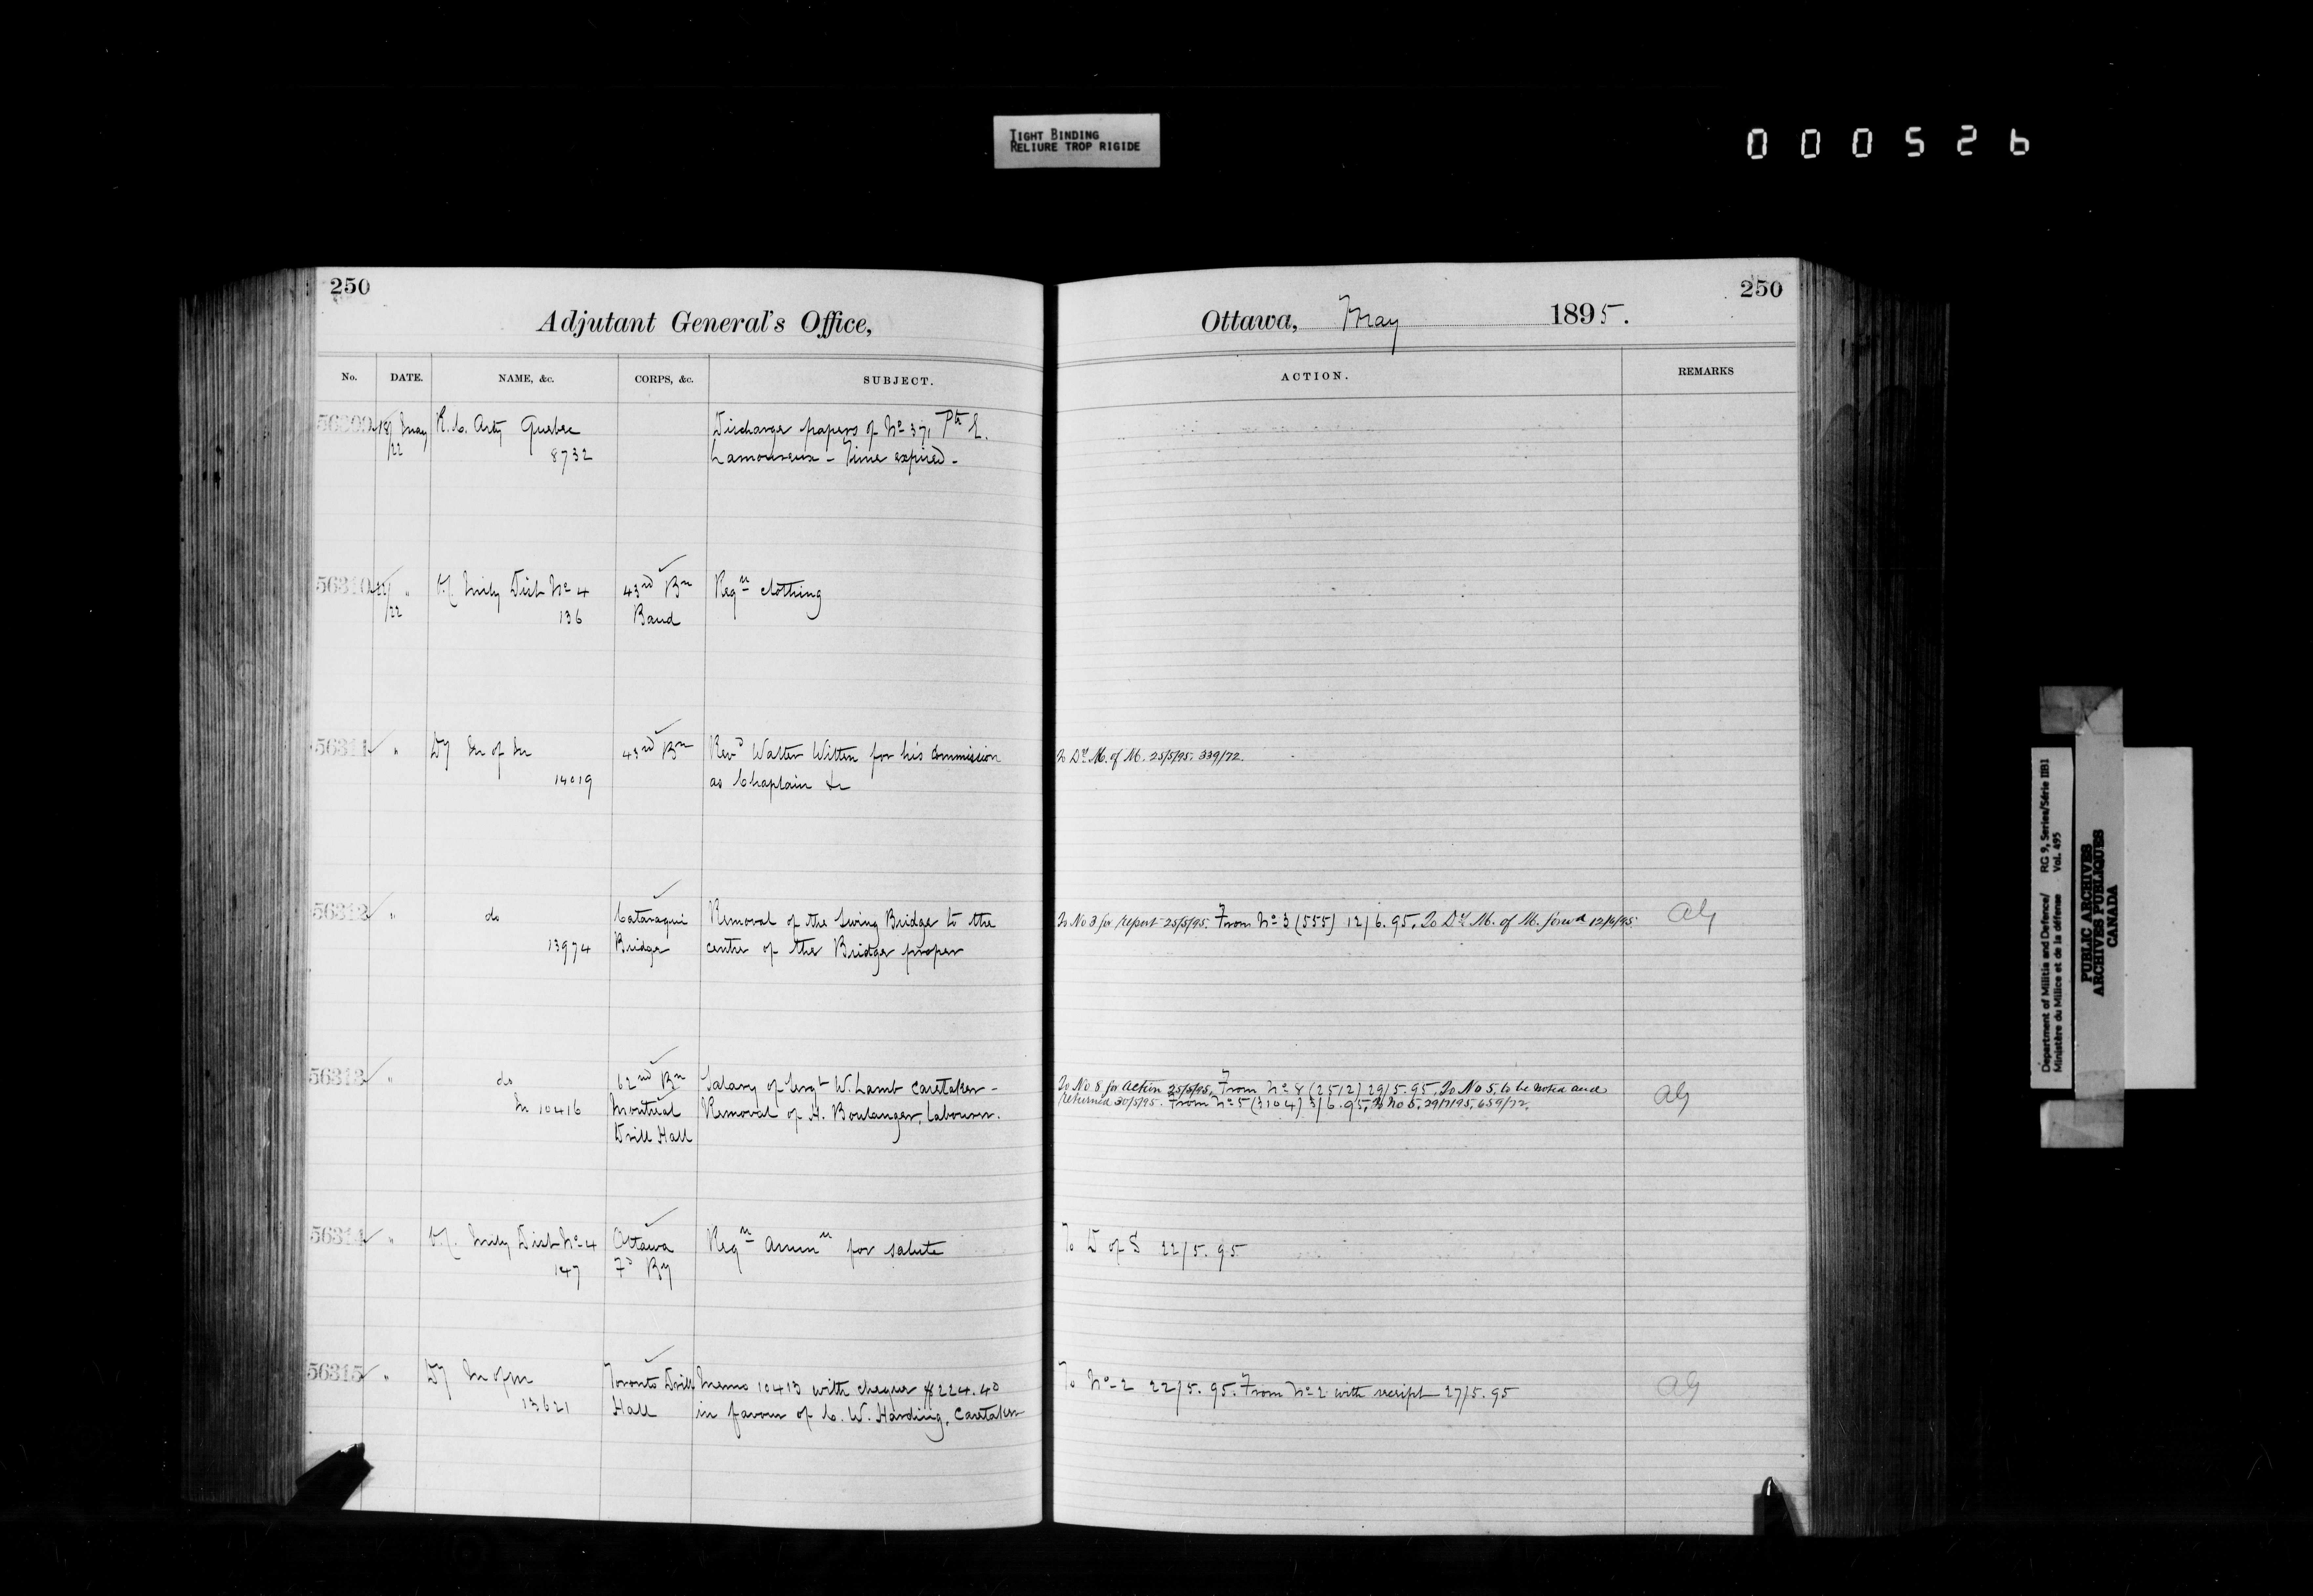 TIGHT BINDING
RELIURE TROP RIGIDE
000526
250
Adjutant General's Office,
No. DATE. NAME, &c. CORPS, &c. SUBJECT.
56309 18/ May R. C. Arty Quebec Discharge papers of No 371 Pte E.
/22 8732 Lamoureux - Time expired -
56310 21/ " O.C. Mily Dist No 4 43rd Bn Reqn clothing
/22 136 Band
56311 " DY M of M 43rd Bn Revd Walter Witten for his Commission
14019 as Chaplain &c
56312 " do Cataraqui Removal of the Swing Bridge to the
13974 Bridge centre of the Bridge proper
56313 " do 62nd Bn Salary of Sergt W. Lamb Caretaker -
M 10416 Montreal Removal of H. Boulanger, Labourer.
Drill Hall
56314 " O.C. Mily Dist No 4 Ottawa Reqn Ammn for salute
147 Fd By
56315 " DY M of M Toronto Drill Memo 10413 with cheque $224.40
13621 Hall in favour of C. W. Harding, Caretaker
250
Ottawa, May 1895.
ACTION. REMARKS
To DY. M. of M. 25/5/95. 339/72.
To No 3 for report 25/5/95. From No 3 (555) 12/6.95, To DY. M. of M. forwd 12/6/95. AG
To No 8 for action 25/5/95, From No 8 (2512) 29/5.95, To No 5, to be noted and
returned 30/5/95. From No 5 (3104) 3/6.95, To No 5, 29/7/95, 659/72. AG
To D of S 22/5.95
To No 2 22/5.95. From No 2 with receipt 27/5.95 AG
Department of Militia and Defence/ RG 9, Series/Série IIB1
Ministère du Milice et de la défense Vol. 495
PUBLIC ARCHIVES
ARCHIVES PUBLIQUES
CANADA